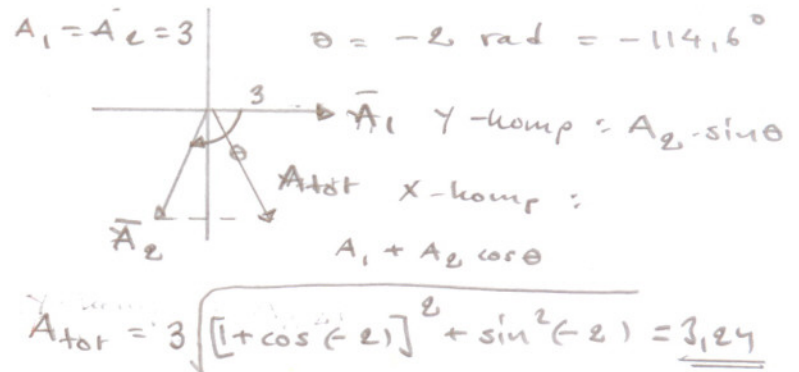 A₁ = A₂ = 3    θ = -2 rad = -114,6°
3
Ā₁    Y-komp : A₂·sinθ
θ
Atot    X-komp :
Ā₂    A₁ + A₂ cosθ
Atot = 3√([1+cos(-2)]² + sin²(-2)) = 3,24